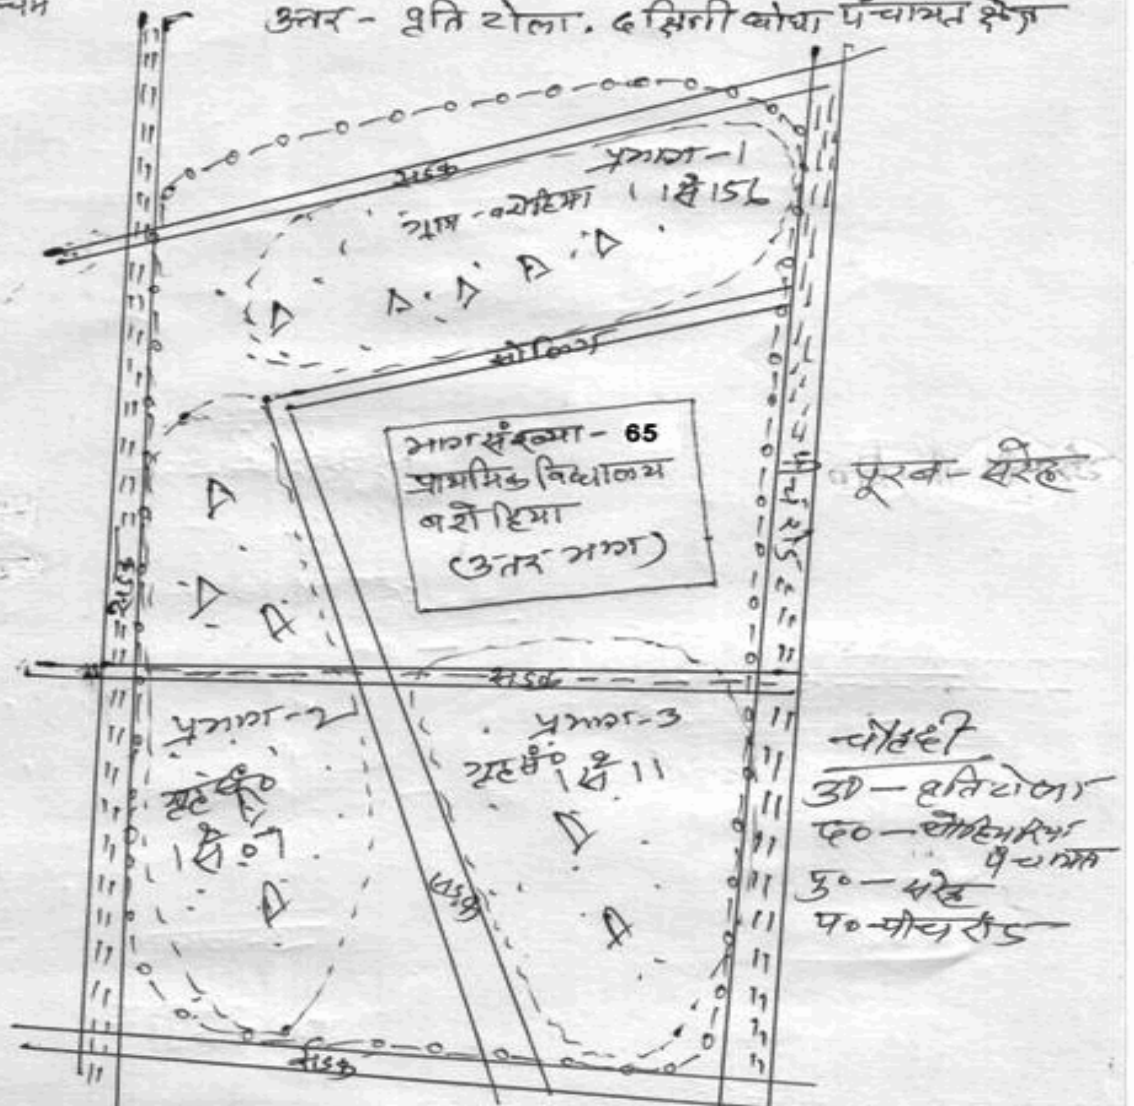 उत्तर - वृति टोला, दक्षिणी घोघा पंचायत क्षेत्र
सड़क
प्रभाग-1
ग्राम - बरोहिया 1 से 156
सोलिंग
भाग संख्या - 65
प्राथमिक विद्यालय
बरोहिया
(उतर भाग)
पूरब - सरेह
सड़क
सड़क
प्रभाग-2
गृह सं०
1 से 07
प्रभाग-3
गृह सं० 1 से 11
चौहद्दी
उ० - वृति टोला
द० -
पंचायत
पु० - सरेह
प० - पीच रोड
सड़क
सड़क